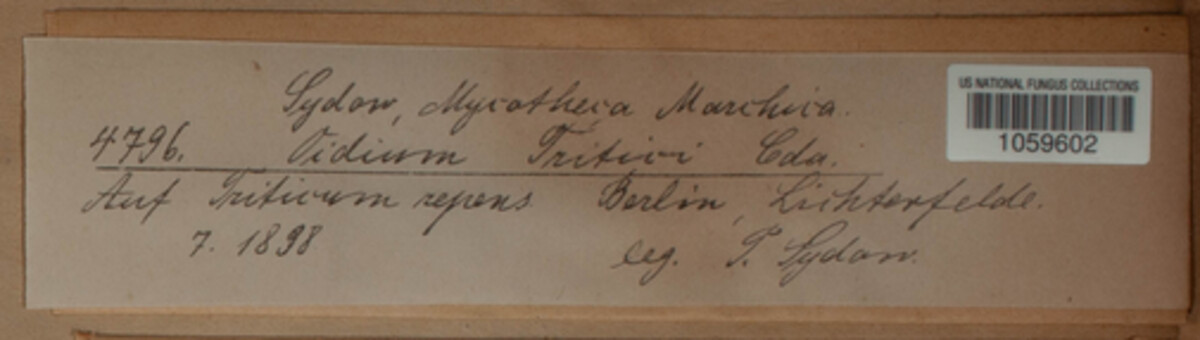 Sydow, Mycotheca Marchica.
4796. Oidium Tritici Cda.
Auf Triticum repens Berlin, Lichterfelde.
7. 1898
leg. P. Sydow.
US NATIONAL FUNGUS COLLECTIONS
1059602